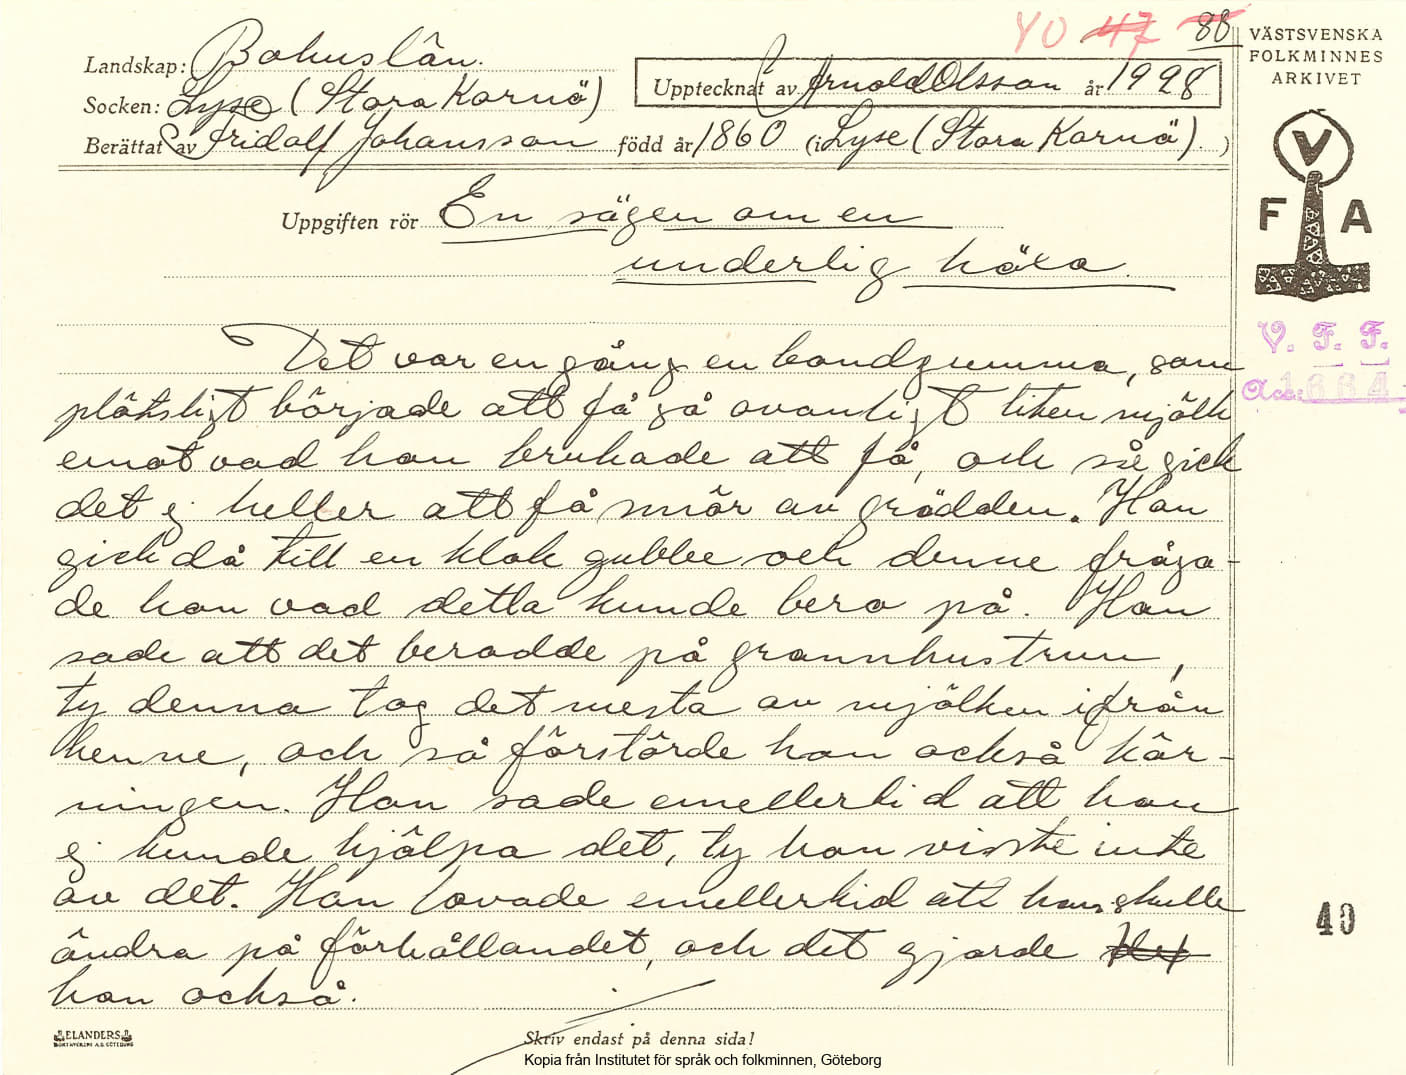 40 47 88
VÄSTSVENSKA
FOLKMINNES
ARKIVET
Landskap: Bohuslän.
Upptecknat av Arnold Olsson år 1928
Socken: Lyse (Stora Kornö)
Berättat av Fridolf Johansson född år 1860 (i Lyse (Stora Kornö). )
V
F A
Uppgiften rör En sägen om en
underlig häxa.
V. F. F.
Acc: 1664
Det var en gång en bondgumma, som
plötsligt började att få så ovanligt liten mjölk
emot vad hon brukade att få, och så gick
det ej heller att få smör av grädden. Hon
gick då till en klok gubbe och denne fråga-
de hon vad detta kunde bero på. Han
sade att det berodde på grannhustrun,
ty denna tog det mesta av mjölken ifrån
henne, och så förstörde hon också kär-
ningen. Han sade emellertid att hon
ej kunde hjälpa det, ty hon visste inte
av det. Han lovade emellertid att han skulle
ändra på förhållandet, och det gjorde
han också.
40
ELANDERS
Skriv endast på denna sida!
Kopia från Institutet för språk och folkminnen, Göteborg